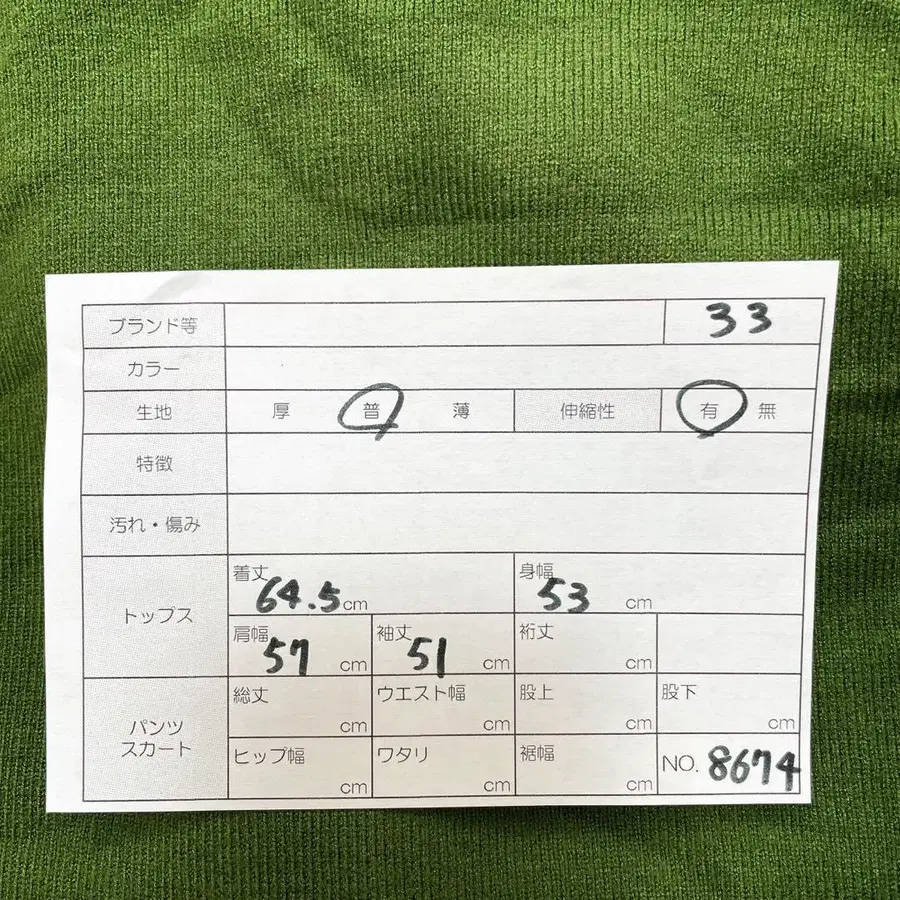 ブランド等 33
カラー
生地 厚 普 薄 伸縮性 有 無
特徴
汚れ・傷み
トップス
着丈 64.5cm 身幅 53 cm
肩幅 57 cm 袖丈 51 cm 裄丈 cm
パンツ
スカート
総丈 cm ウエスト幅 cm 股上 cm 股下 cm
ヒップ幅 cm ワタリ cm 裾幅 cm NO. 8674